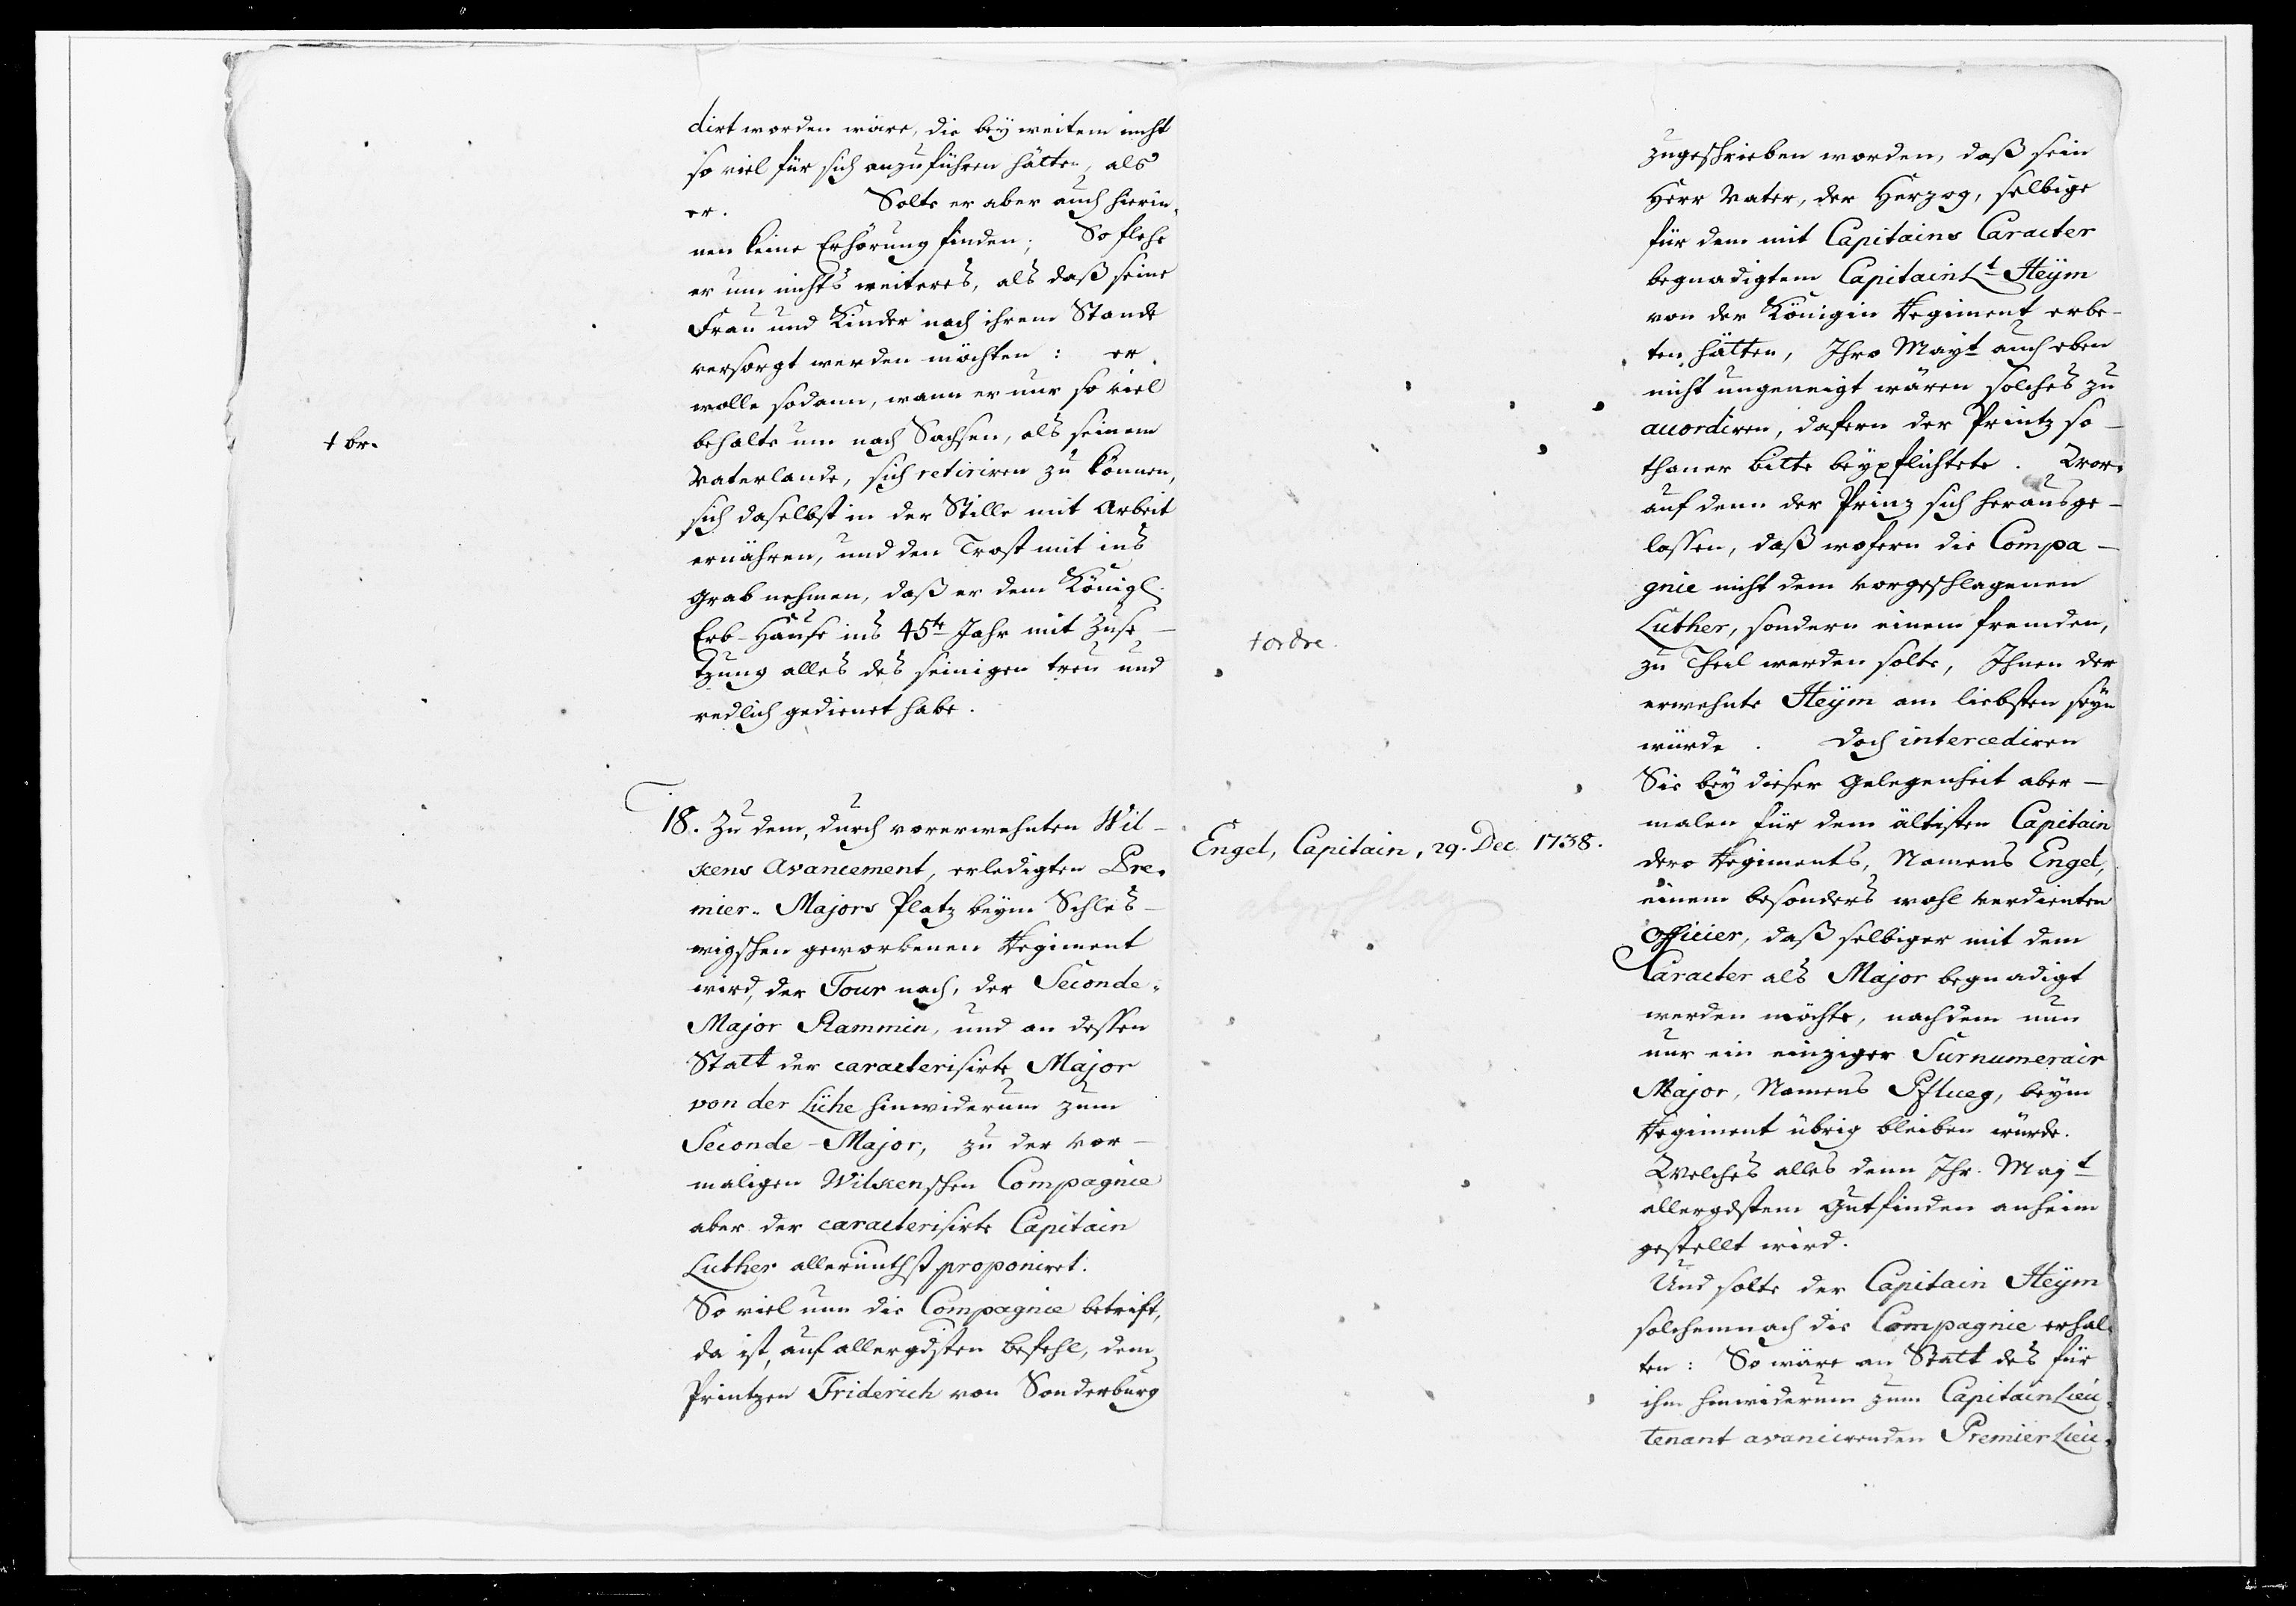 dirt worden wäre, die beÿ weitem nicht
so viel für sich anzuführen hätten, als
er. Solte er aber auch hierin-
nen keine Erhörung finden; So flehe
er um nichts weiteres, als daß seine
Frau und Kinder nach ihrem Stande
versorgt werden möchten: er
wolle sodann, wann er nur so viel
behalte um nach Sachsen, als seinem
Vaterlande, sich retiriren zu können,
sich daselbst in der Stille mit Arbeit
ernähren, und den Trost mit ins
Grab nehmen, daß er dem Königl.
Erb-Hause ins 45te Jahr mit Zuse-
tzung alles des seinigen treu und
redlich gedienet habe.
† br.
18. Zu dem, durch vorerwehnten Wil-
kens Avancement, erledigten Pre-
mier-Majors Platz beÿm Schles-
wigschen geworbenen Regiment
wird, der Tour nach, der Seconde-
Major Rammin, und an dessen
Statt der caracterisirte Major
von der Lühe hinwiderum zum
Seconde-Major, zu der vor-
maligen Wilkenschen Compagnie
aber der caracterisirte Capitain
Luther allerunthst proponiret.
So viel nun die Compagnie betrift,
da ist, auf allergdsten Befehl, dem
Printzen Friderich von Sonderburg
zugeschrieben worden, daß sein
Herr Vater, der Herzog, selbige
für dem mit Capitains Caracter
begnadigtem Capitain Lt Heÿm
von der Königin Regiment erbe-
ten hätten, Ihro Maÿt auch eben
nicht ungeneigt wären solches zu
accordiren, dafern der Printz so-
thaner Bitte beÿpflichtete. Wor-
auf denn der Prinz sich herausge-
lassen, daß wofern die Compa-
gnie nicht dem vorgeschlagenen
Luther, sondern einem fremden,
zu Theil werden solte, Ihnen der
erwehnte Heÿm am liebsten seÿn
würde. Doch intercediren
Sie beÿ dieser Gelegenheit aber-
malen für dem ältisten Capitain
dero Regiments, Namens Engel,
einem besonders wohl verdienten
Officier, daß selbiger mit dem
Caracter als Major begnadigt
werden möchte, nachdem nun
nur ein einziger Surnumerair
Major, Namens Pflueg, beÿm
Regiment übrig bleiben würde.
Welches alles denn Ihr. Majt
allergdstem Gutfinden anheim
gestellt wird.
Und solte der Capitain Heÿm
solchemnach die Compagnie erhal-
ten: So wäre an Statt des für
ihm hinwiderum zum Capitain Lieu-
tenant avancirenden Premier Lieu-
† ordre.
Engel, Capitain, 29. Dec. 1738.
abgeschlag